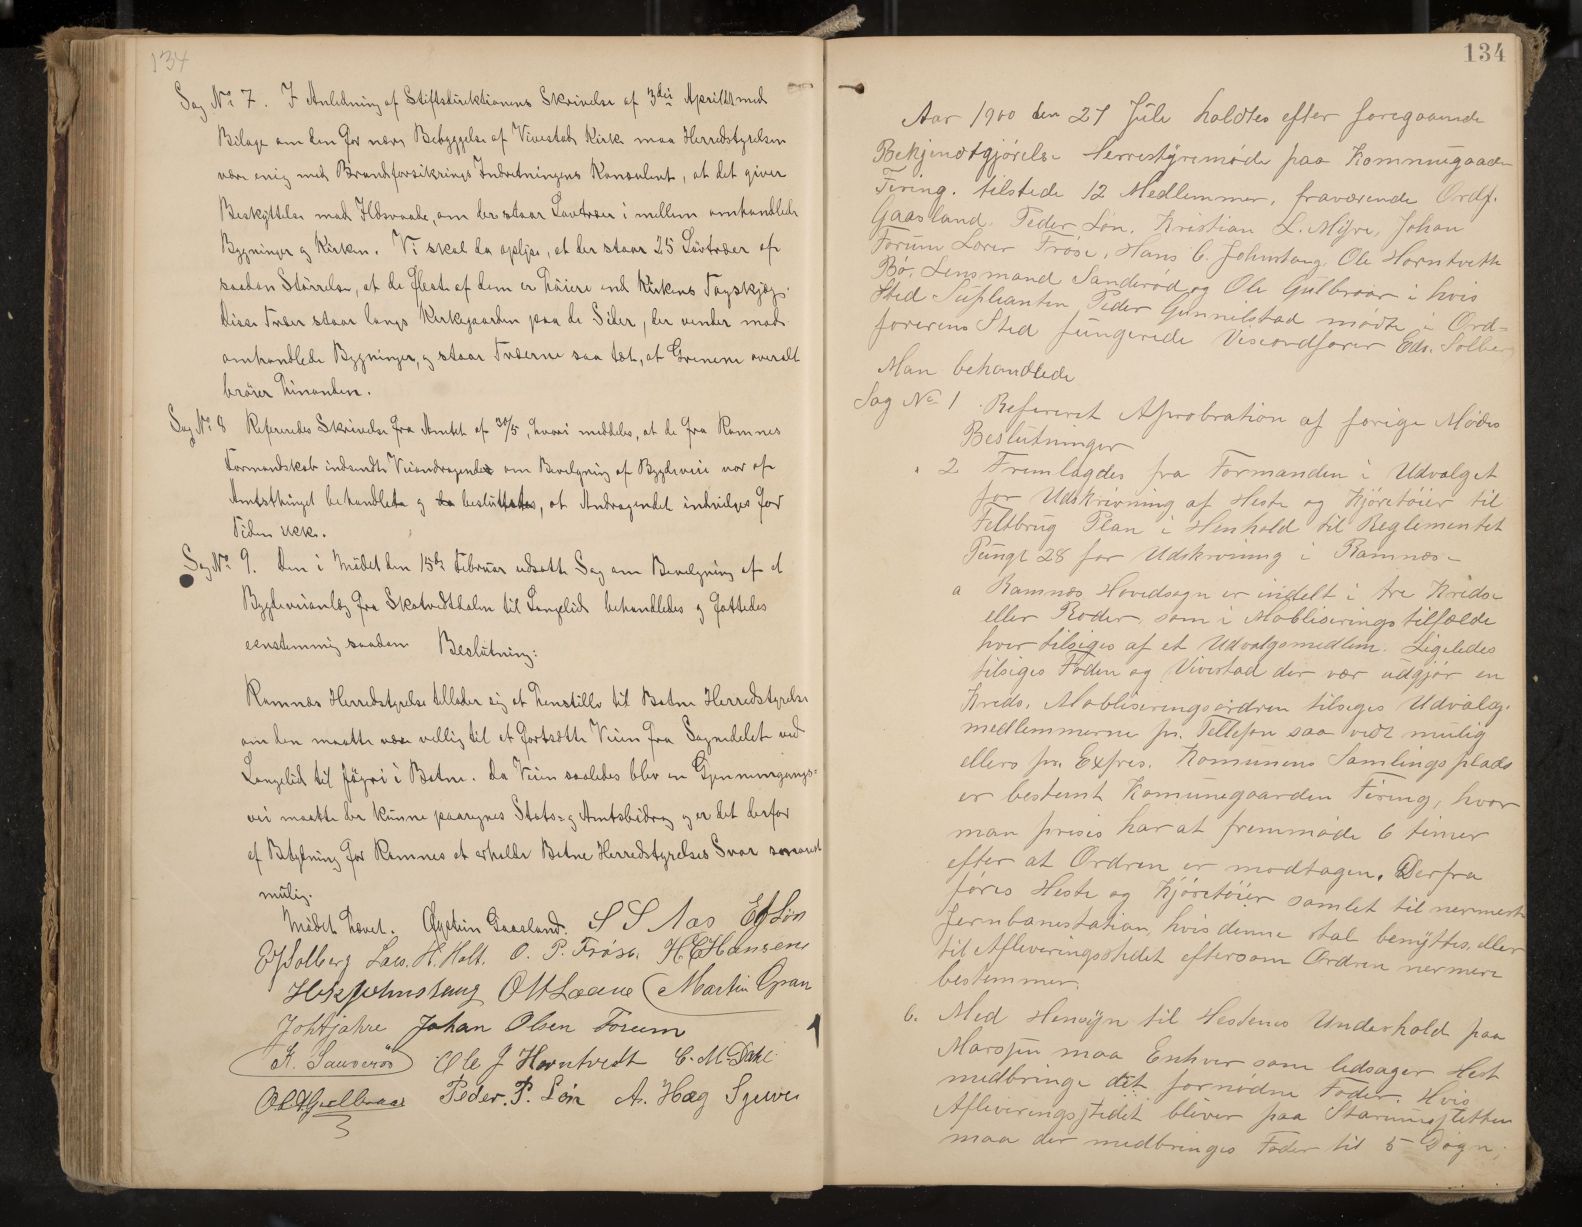 134
Sag No 7. I Anledning af Stiftsdirektionens Skrivelse af 3die April med
Bilage om den for nære Bebyggelse af Vivestad Kirke maa Herredstyrelsen
være enig med Brandforsikrings Indretningens Konsulent, at det giver
Beskyttelse mod Ildsvaade, om der staar Løvtræer i mellem omhandlede
Bygninger og Kirken. Vi skal da oplyse, at der staar 25 Løvtræer af
saadan Størrelse, at de fleste af dem er høiere end Kirkens Tagskjæg.
Disse Træer staar langs Kirkegaarden paa de Sider, der vender mod
omhandlede Bygninger, og staar Træerne saa tæt, at Grenene overalt
berører hinanden.
Sag No 8 Refereredes Skrivelse fra Amtet af 30/5, hvori meddeles, at de fra Ramnes
Formandskab indsendte Veiandragende om Bevilgning af Bygdeveie var af
Amtsthinget behandlet og besluttet, at Andragendet indvilges for
Tiden ikke.
Sag No 9. Den i Mødet den 15de Februar udsatte Sag om Bevilgning af et
Bygdeveianlæg fra Skatvedthalen til Langelid behandledes og fattedes
eenstemmig saadan Beslutning:
Ramnes Herredstyrelse tillader sig at henstille til Botne Herredstyrelse
om den maatte være villig til at fortsætte Veien fra Sognedelet ved
Langelid til i Botne. Da Veien saaledes blev en Gjennemgangs=
vei maatte der kunne paaregnes Stats= og Amtsbidrag og er det derfor
af Betydning for Ramnes at erholde Botne Herredstyrelses Svar snarest
mulig.
Mødet hævet. Øystein Gaasland. S S Aas E Løn
E Solberg Lars. H. Holt. O. P. Frøse. H. E Hansene
H Johnstang Ole Martin Gran
Joh Myhre Johan Olsen Forum
K. Sanderød Ole J Horntvedt C. M. Dahl
O Gulbraar Peder. P. Løn A. Hæg
134
Aar 1900 den 27 Juli holdtes efter foregaaende
Bekjendtgjørelse Herrestyremøde paa Kommunegaaden
Firing. tilstede 12 Medlemmer, fraværende Ordf.
Gaasland. Peder Løn, Kristian L. Myre, Johan
Forum Lærer Frøse, Hans C. Johnstang, Ole Horntvetk
Bø. Lensmand Sanderød og Ole Gulbraar i hvis
Sted Suplianten Peder Gunnilstad mødte, i Ord=
førerens Sted fungerede Viseordfører Edv. Solberg
Man behandlede
Sag No 1 Refereret Aprobration af forige Mødes
Beslutninger
" 2 Fremlagdes fra Formanden i Udvalget
for Udskrivning af Heste og Kjøretøier til
Feltbrug Plan i Henhold til Reglementet
Pungt 28 for Udskrivning i Ramnæs=
a Ramnæs Hovedsogn er inddelt i tre Kredse
eller Roder, som i Mobliserings tilfælde
hver tilsiges af et Udvalgsmedlem. Ligeledes
tilsiges Foden og Vivestad der vær udgjør en
Kreds. Mobliseringsordren tilsiges Udvalg.
medlemmerne pr. Tellefon saa vidt mulig
ellers pr. Exspres. Komunens Samlingsplads
er bestemt Komunegaarden Firing, hvor
man presis har at fremmøde 6 timer
efter at Ordren er modtagen. Derfra
føres Heste og Kjøretøier samlet til nermeste
Jernbanestation, hvis denne skal benyttes, eller
til Afleveringsstedet eftersom Ordren nermere
bestemmer.
b. Med Hensyn til Hestenes Underhold paa
Marsjen maa Enhver som ledsager Hest
medbringe det fornødne Foder. Hvis
Afleveringsstedet bliver paa Starumsletten
maa der medbringes Foder til 5 Døgn,